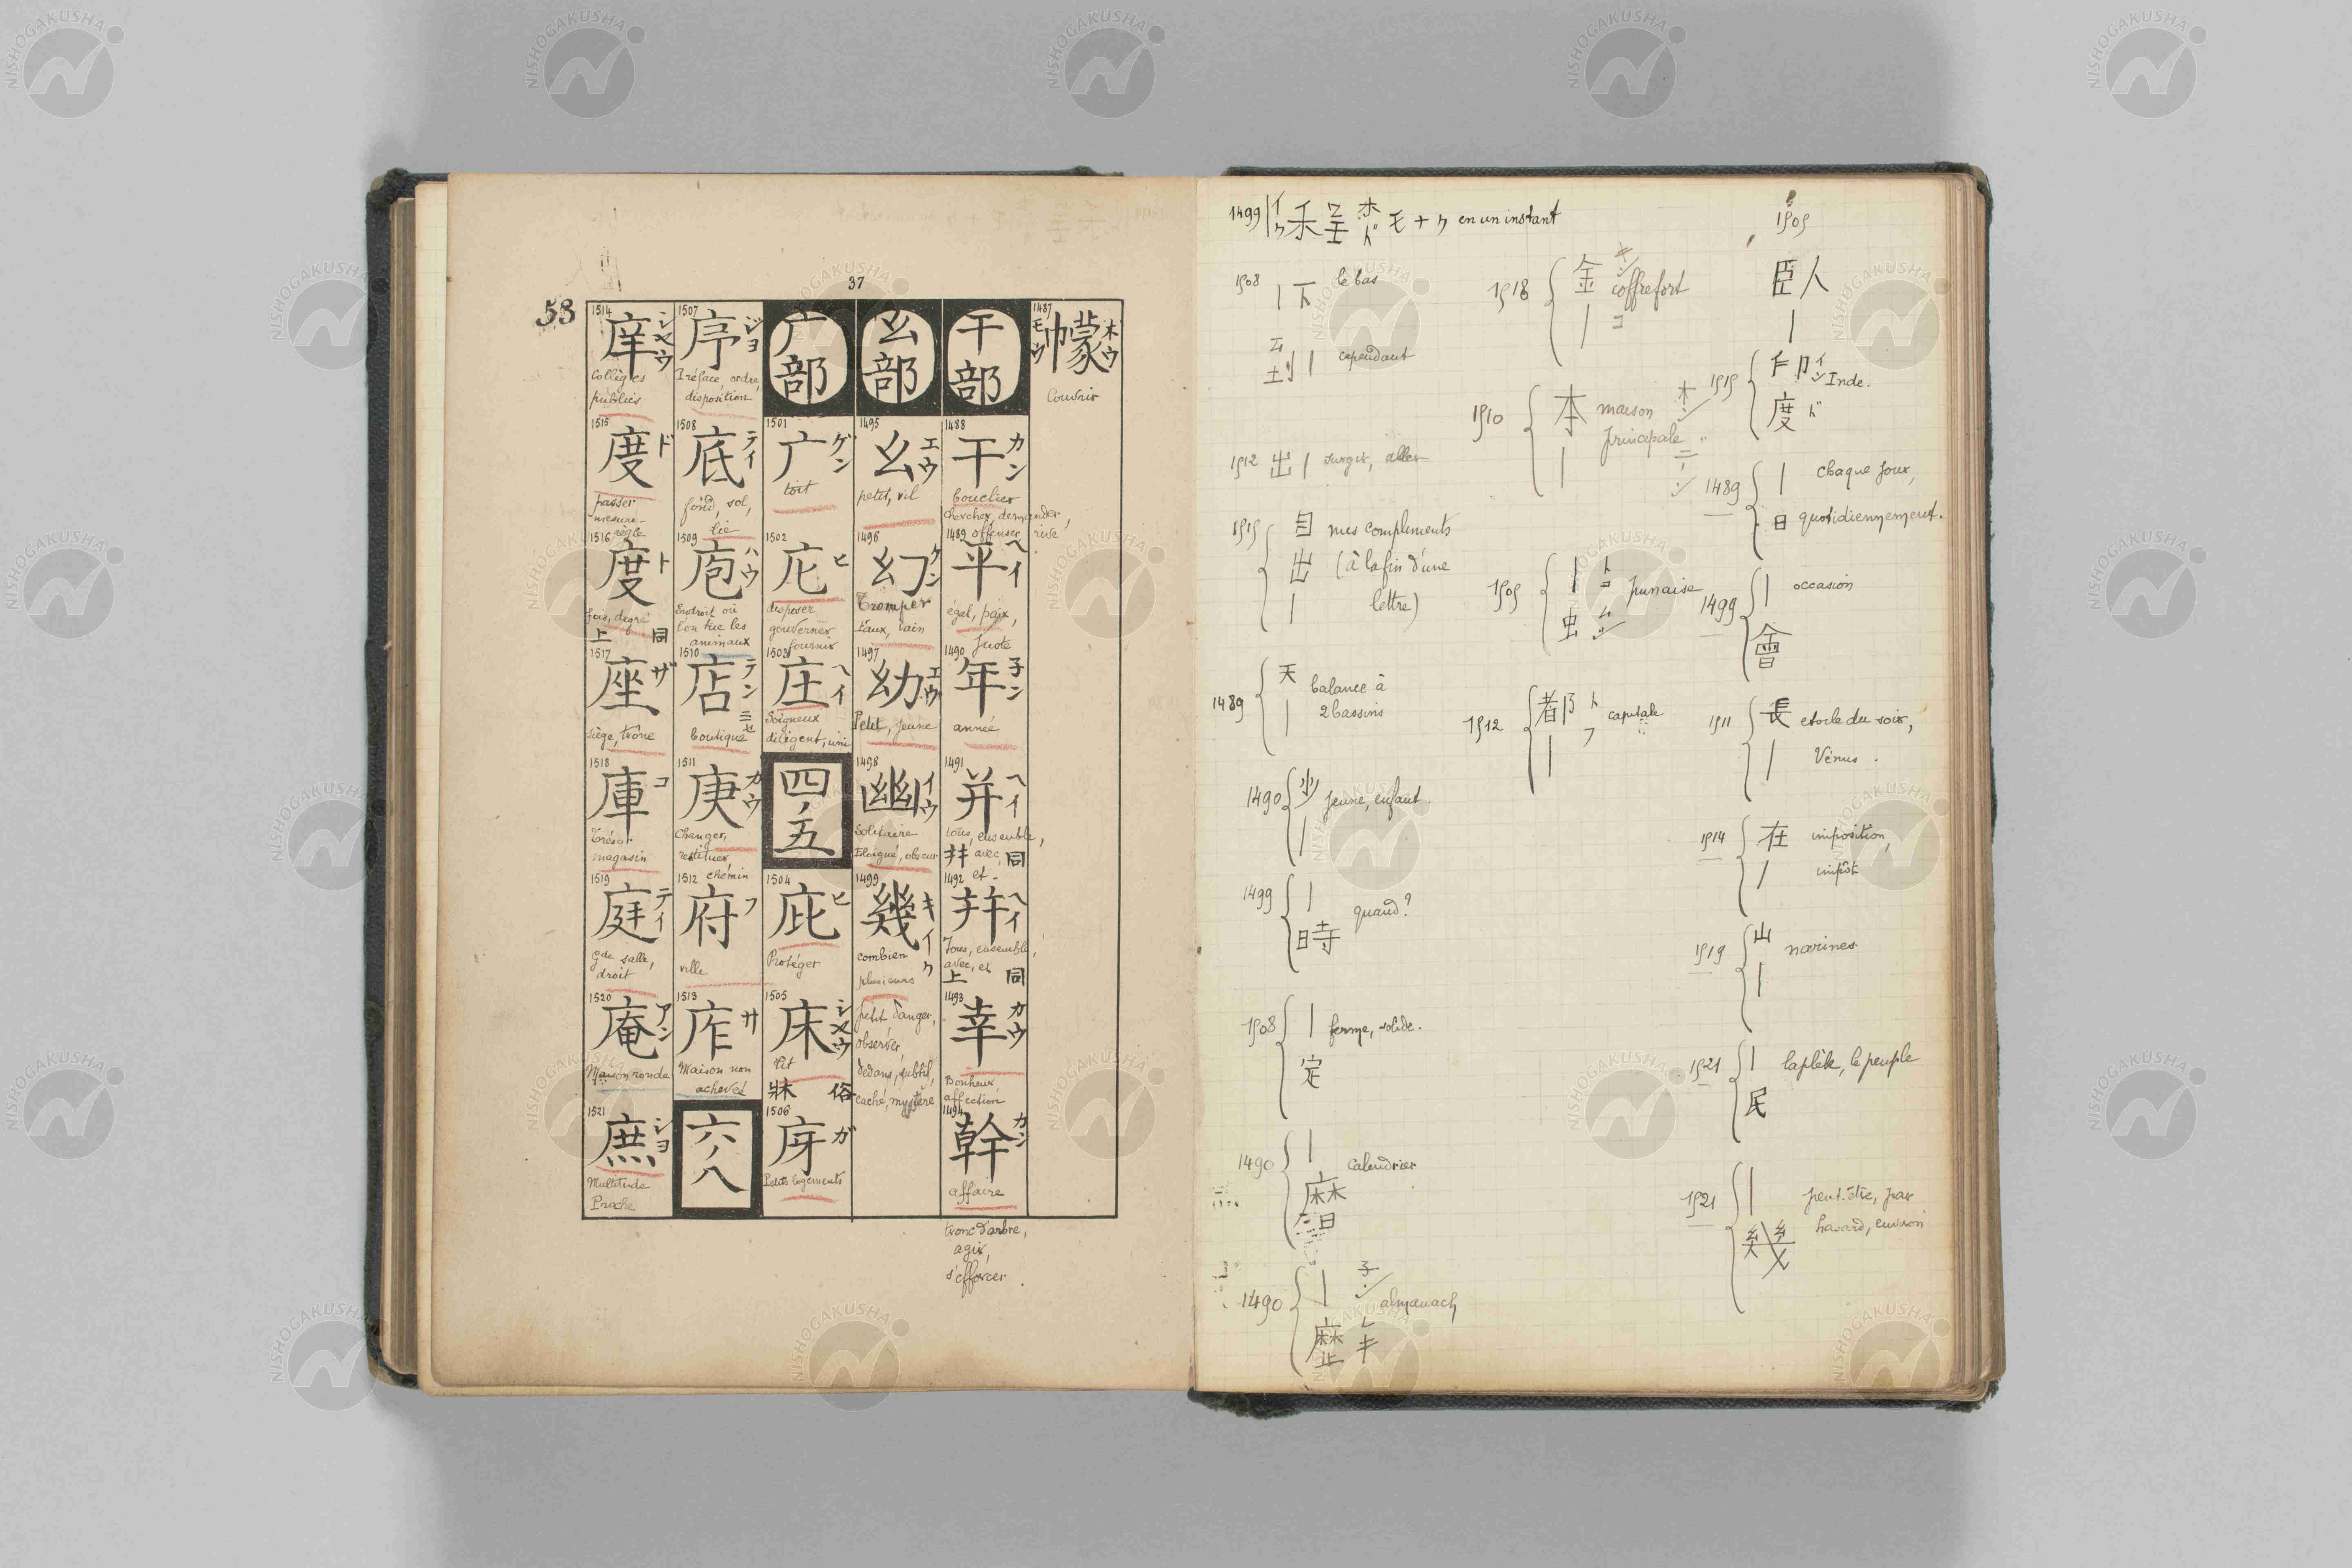 37
53
1487
幪
モウ
ホウ
Couvrir
干部
1488
干
カン
bouclier
chercher, demander,
offenser, rive
1489
平
ヘイ
égal, paix,
Juste
1490
年
子ン
année
1491
并
ヘイ
tous, ensemble,
avec, 同
et -
1492
幷
ヘイ
Tous, ensemble,
avec, et
上同
1493
幸
カウ
Bonheur,
affection
1494
幹
カン
affaire
tronc d'arbre,
agir,
s'efforcer.
幺部
1495
幺
エウ
petit, vil
1496
幻
ゲン
Tromper
Faux, vain
1497
幼
エウ
Petit, jeune
1498
幽
イウ
Solitaire
Eloigné, obscur
1499
幾
キ
イク
combien
plusieurs
petit danger,
observer,
dedans, subtil,
caché, mystère
广部
1501
广
ゲン
toit
1502
庀
ヒ
disposer
gouverner
fournir
1503
庄
ヘイ
Soigneux
diligent, uni
四ノ五
1504
庇
ヒ
Protéger
1505
床
シヤウ
Lit
牀 俗
1506
庌
ガ
Petits logements
1507
序
ジヨ
Préface, ordre,
disposition
1508
底
テイ
fond, sol,
lie
1509
庖
ハウ
Endroit où
l'on tue les
animaux
1510
店
テン
ミセ
boutique
1511
庚
カウ
Changer,
restituer,
chemin
1512
府
フ
ville
1513
庤
サ
Maison non
achevée
六ノ八
1514
庠
シヤウ
Collèges
publics
1515
度
ド
passer
mesure
règle
1516
度
ト
fois, degré
上同
1517
座
ザ
siège, trône
1518
庫
コ
Trésor
magasin
1519
庭
テイ
gde salle,
droit
1520
庵
アン
Maison ronde
1521
庶
シヨ
Multitude
Proche
1499 en un instant
1508 | 下 le bas
到 | cependant
1512 出 | surgir, aller
1515 目 mes compliments
出 (à la fin d'une
| lettre)
1489 天 balance à
| 2 bassins
1490 少 jeune, enfant.
|
1499 | quand?
時
1508 | ferme, solide.
定
1490 | calendrier
暦
1490 | 子ン almanach
歴 レキ
1518 金 キン coffrefort
| コ
1510 本 ホン maison
| principale
1505 | トコ punaise
虫 ムシ
1512 都 ト capitale
| フ
1505
臥人
|
1515 印 イン Inde.
度 ド
1489 | chaque jour,
日 quotidiennement.
1499 | occasion
會
1511 長 étoile du soir,
| Vénus.
1514 在 imposition,
| impôt
1519 山 narines
|
1521 | la plèbe, le peuple
民
1521 | peut-être, par
幾 hasard, environ